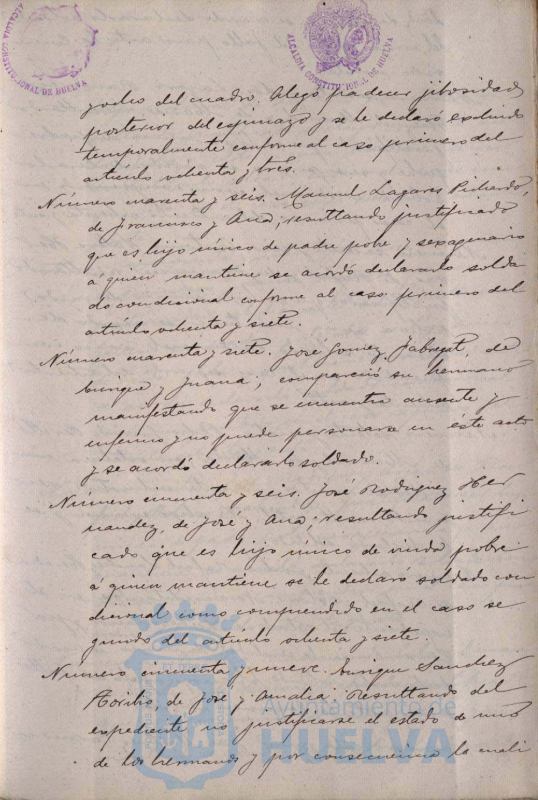 ALCALDIA CONSTITUCIONAL DE HUELVA
ALCALDIA CONSTITUCIONAL DE HUELVA
y ocho del cuadro. Alegó padecer jibosidad
posterior del espinazo y se le declaró excluido
temporalmente conforme al caso primero del
artículo ochenta y tres.
Número cuarenta y seis. Manuel Lagares Pichardo,
de Francisco y Ana; resultando justificado
que es hijo único de padre pobre y sexagenario
á quien mantiene se acordó declararlo solda
do condicional conforme al caso primero del
artículo ochenta y siete.
Número cuarenta y siete. José Gomez, de
Enrique y Juana; compareció su hermano
manifestando que se encuentra ausente y
enfermo y no puede personarse en éste acto
y se acordó declararlo soldado.
Número cincuenta y seis. José Rodriguez Her
nandez, de José y Ana; resultando justifi
cado que es hijo único de viuda pobre
á quien mantiene se le declaró soldado con
dicional como comprendido en el caso se
gundo del artículo ochenta y siete.
Número cincuenta y nueve. Enrique Sanchez
de José y Amalia. Resultando del
expediente no justificarse el estado de uno
de los hermanos y por consecuencia la cuali
Ayuntamiento de
HUELVA